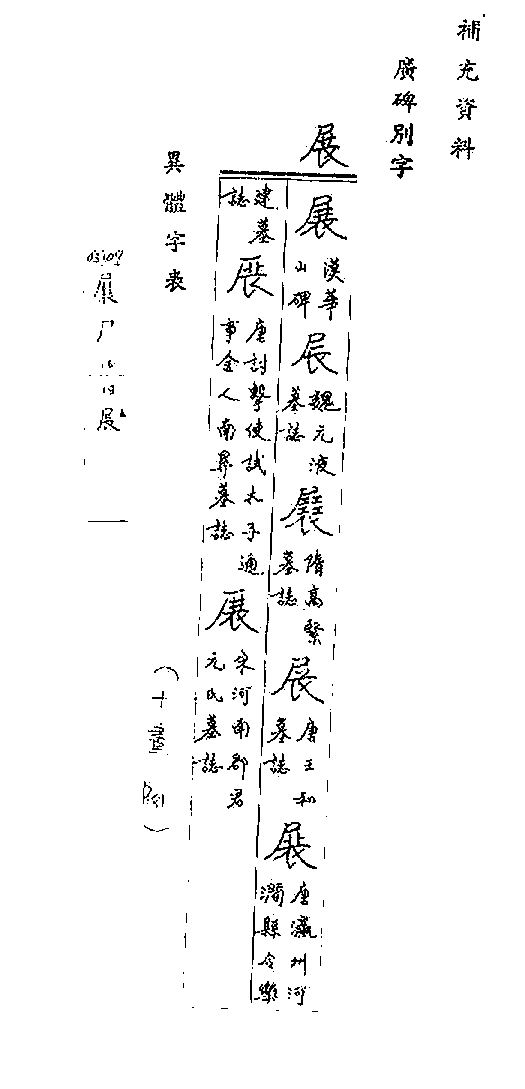 補充資料
廣碑別字
展
展 漢華山碑 展 魏元液墓誌 展 隋高緊墓誌 展 唐王和墓誌 展 唐瀛州河澗縣令樂
建墓誌 展 唐討擊使試太子通事舍人南昇墓誌 展 宋河南郡君元氏墓誌
異體字表
(十畫
展